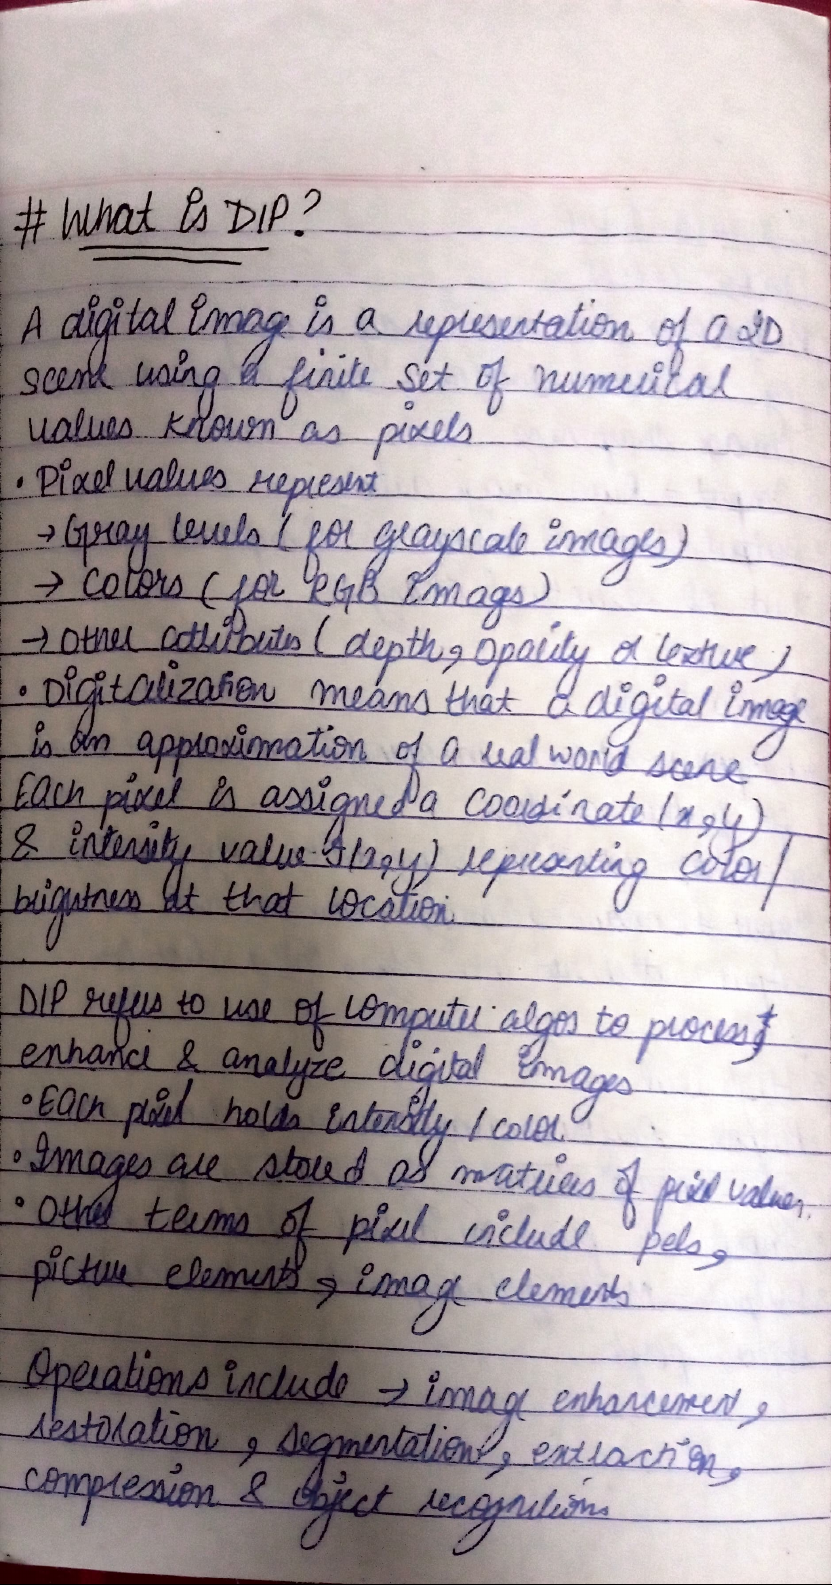 # What is DIP?
A digital image is a representation of a 2D
scene using a finite set of numerical
values known as pixels
• Pixel values represent
→ Gray levels (for grayscale images)
→ Colors (for RGB Images)
→ Other attributes (depth, opacity or texture)
• Digitalization means that a digital image
is an approximation of a real world scene
Each pixel is assigned a coordinate (x,y)
& intensity value f(x,y) representing color/
brightness at that location
DIP refers to use of computer algos to process,
enhance & analyze digital images
• Each pixel holds intensity / color
• Images are stored as matrices of pixel values.
• Other terms of pixel include pels,
picture elements, image elements
Operations include → image enhancement,
restoration, segmentation, extraction,
compression & object recognitions